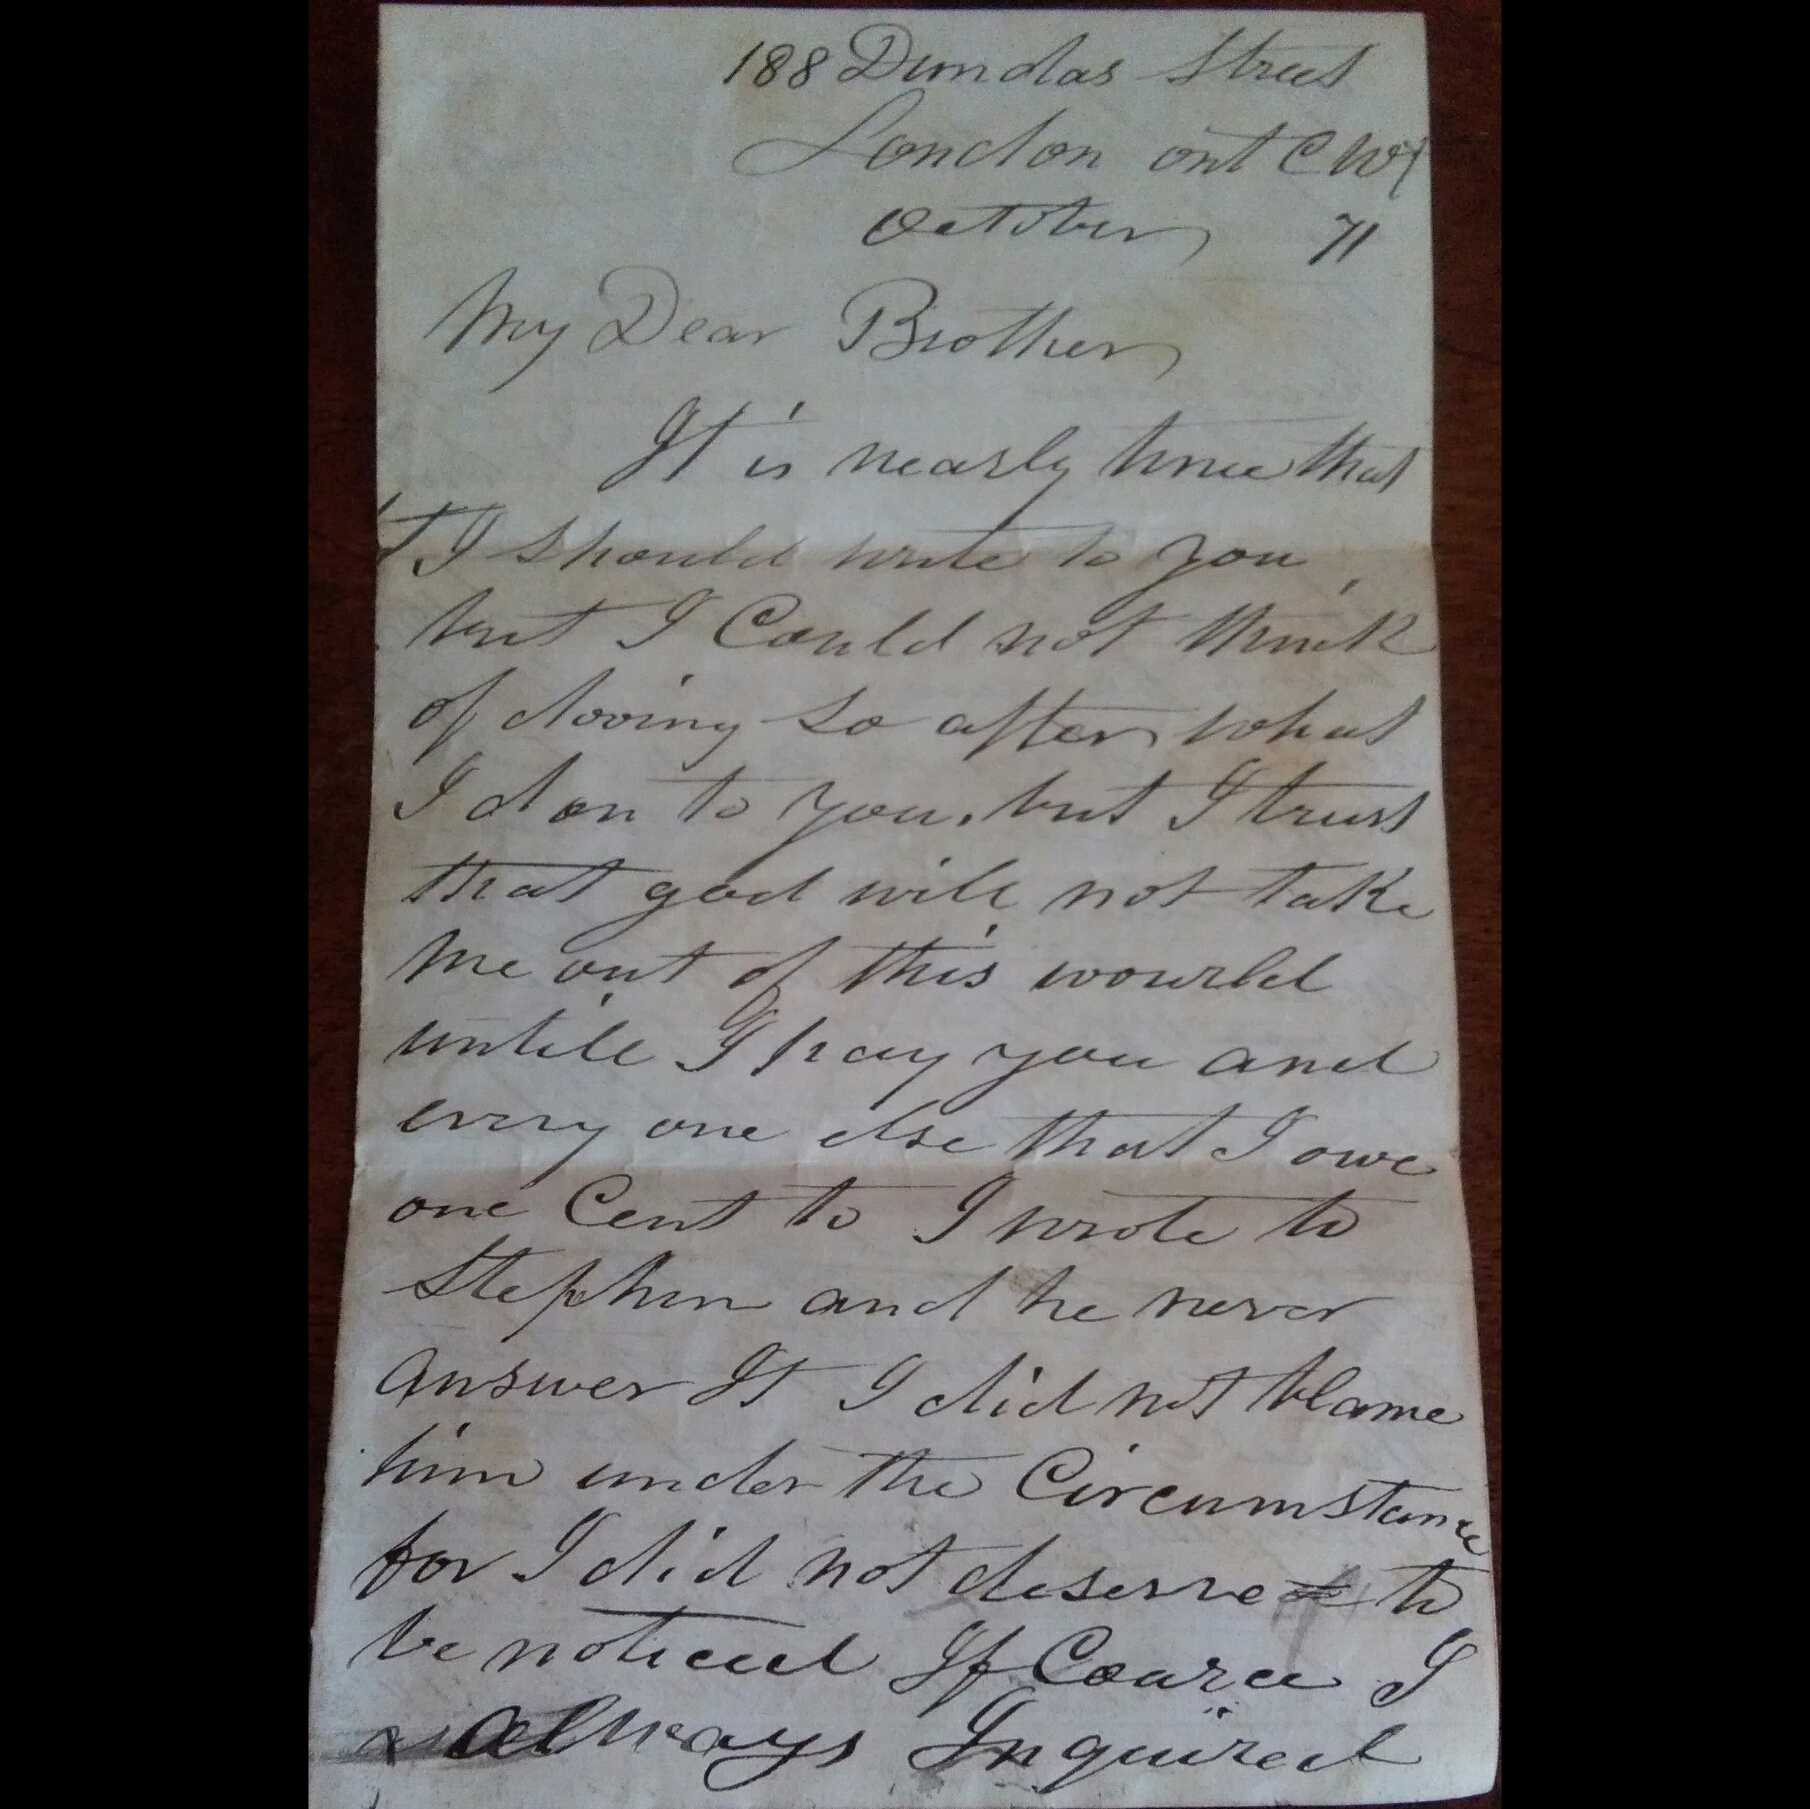 188 Dundas Street
London ont C W
October 71
My Dear Brother
It is nearly time that
I should write to you,
but I Could not think
of dooing so after what
I don to you. but I trust
that god will not take
me out of this wourld
untill I pay you and
every one else that I owe
one Cent to I wrote to
Stephen and he never
answer It I did not blame
him under the Circumstance
for I did not deserve to
be noticed If Cource I
always Inquired